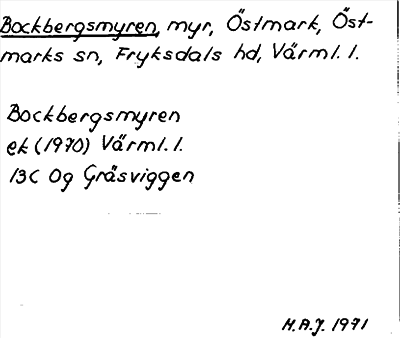 Bockbergsmyren, myr, Östmark, Öst-
marks sn, Fryksdals hd, Värml. l.
Bockbergsmyren
ek (1970) Värml. l.
13C 0g Gräsviggen
H.A.J. 1971